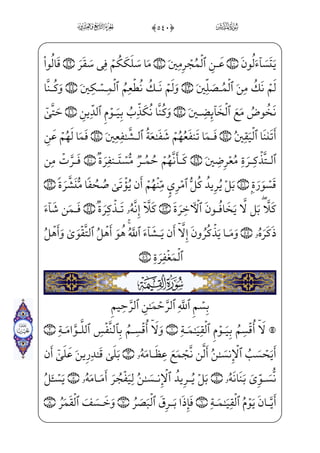 سُورَةُ المُدَّثِّر ﴿٥٤٠﴾ الجُزْءُ التَّاسِعُ وَالعِشْرُونَ
يَتَسَآءَلُونَ ۝ عَنِ ٱلْمُجْرِمِينَ ۝ مَا سَلَكَكُمْ فِى سَقَرَ ۝ قَالُوا۟
لَمْ نَكُ مِنَ ٱلْمُصَلِّينَ ۝ وَلَمْ نَكُ نُطْعِمُ ٱلْمِسْكِينَ ۝ وَكُنَّا
نَخُوضُ مَعَ ٱلْخَآئِضِينَ ۝ وَكُنَّا نُكَذِّبُ بِيَوْمِ ٱلدِّينِ ۝ حَتَّىٰٓ
أَتَىٰنَا ٱلْيَقِينُ ۝ فَمَا تَنفَعُهُمْ شَفَٰعَةُ ٱلشَّٰفِعِينَ ۝ فَمَا لَهُمْ عَنِ
ٱلتَّذْكِرَةِ مُعْرِضِينَ ۝ كَأَنَّهُمْ حُمُرٌ مُّسْتَنفِرَةٌ ۝ فَرَّتْ مِن
قَسْوَرَةٍۭ ۝ بَلْ يُرِيدُ كُلُّ ٱمْرِئٍ مِّنْهُمْ أَن يُؤْتَىٰ صُحُفًا مُّنَشَّرَةً ۝
كَلَّا ۖ بَل لَّا يَخَافُونَ ٱلْءَاخِرَةَ ۝ كَلَّآ إِنَّهُۥ تَذْكِرَةٌ ۝ فَمَن شَآءَ
ذَكَرَهُۥ ۝ وَمَا يَذْكُرُونَ إِلَّآ أَن يَشَآءَ ٱللَّهُ ۚ هُوَ أَهْلُ ٱلتَّقْوَىٰ وَأَهْلُ
ٱلْمَغْفِرَةِ ۝
سُورَةُ القِيَامَةِ
بِسْمِ ٱللَّهِ ٱلرَّحْمَٰنِ ٱلرَّحِيمِ
لَآ أُقْسِمُ بِيَوْمِ ٱلْقِيَٰمَةِ ۝ وَلَآ أُقْسِمُ بِٱلنَّفْسِ ٱللَّوَّامَةِ ۝
أَيَحْسَبُ ٱلْإِنسَٰنُ أَلَّن نَّجْمَعَ عِظَامَهُۥ ۝ بَلَىٰ قَٰدِرِينَ عَلَىٰٓ أَن
نُّسَوِّىَ بَنَانَهُۥ ۝ بَلْ يُرِيدُ ٱلْإِنسَٰنُ لِيَفْجُرَ أَمَامَهُۥ ۝ يَسْـَٔلُ
أَيَّانَ يَوْمُ ٱلْقِيَٰمَةِ ۝ فَإِذَا بَرِقَ ٱلْبَصَرُ ۝ وَخَسَفَ ٱلْقَمَرُ ۝